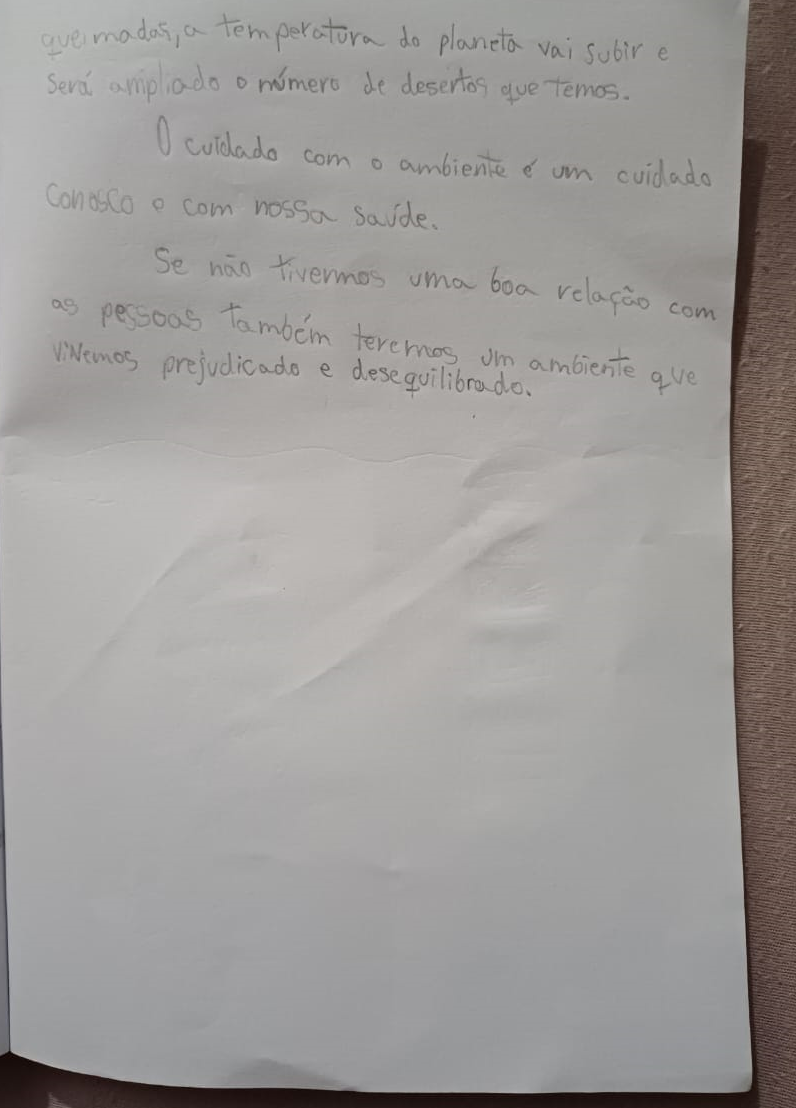 queimadas, a temperatura do planeta vai subir e
será ampliado o número de desertos que temos.
O cuidado com o ambiente é um cuidado
conosco e com nossa saúde.
Se não tivermos uma boa relação com
as pessoas também teremos um ambiente que
vivemos prejudicado e desequilibrado.